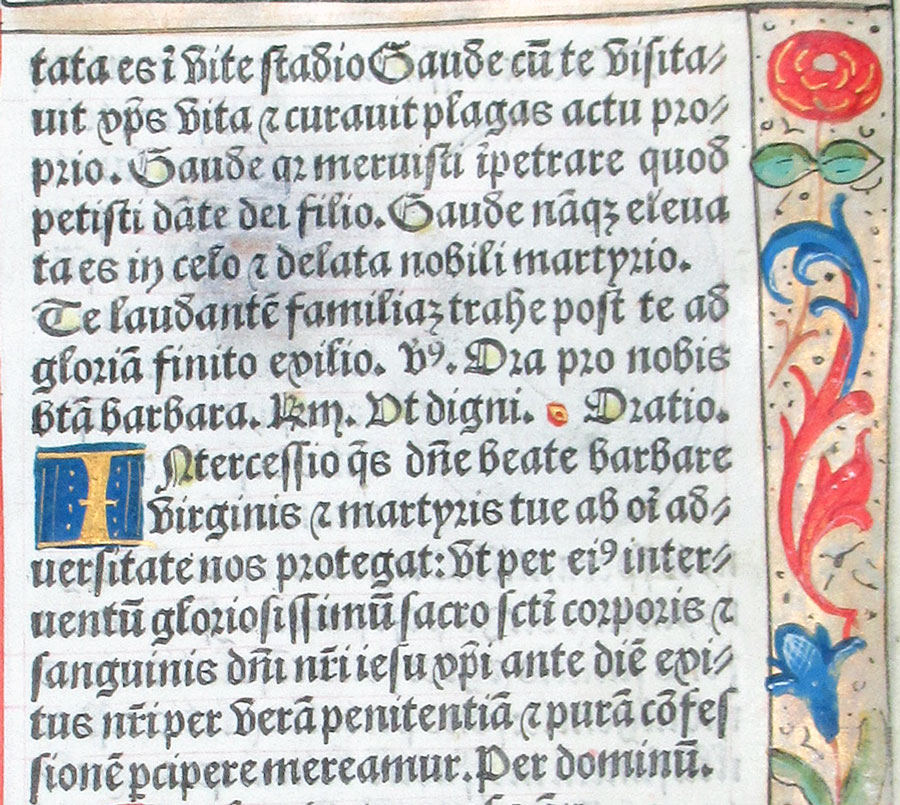 tata es ī vite stadio Gaude cū te visita⸗
uit xp̄s vita ⁊ curauit plagas actu pro⸗
prio. Gaude qꝛ meruisti īpetrare quod
petisti dāte dei filio. Gaude nāqꝫ eleua
ta es in celo ⁊ delata nobili martyrio.
Te laudantē familiaꝫ trahe post te ad
gloriā finito exilio. v̉ꝰ. Ora pro nobis
btā barbara. Rm̄. Vt digni. Oratio.
INtercessio q̄s dn̄e beate barbare
virginis ⁊ martyris tue ab oī ad⸗
uersitate nos protegat: vt per eiꝰ inter⸗
uentū gloriosissimū sacro sctī corporis ⁊
sanguinis dn̄i nr̄i iesu xp̄i ante diē exi⸗
tus nr̄i per verā penitentiā ⁊ purā cōfes
sionē ꝑcipere mereamur. Per dominū.